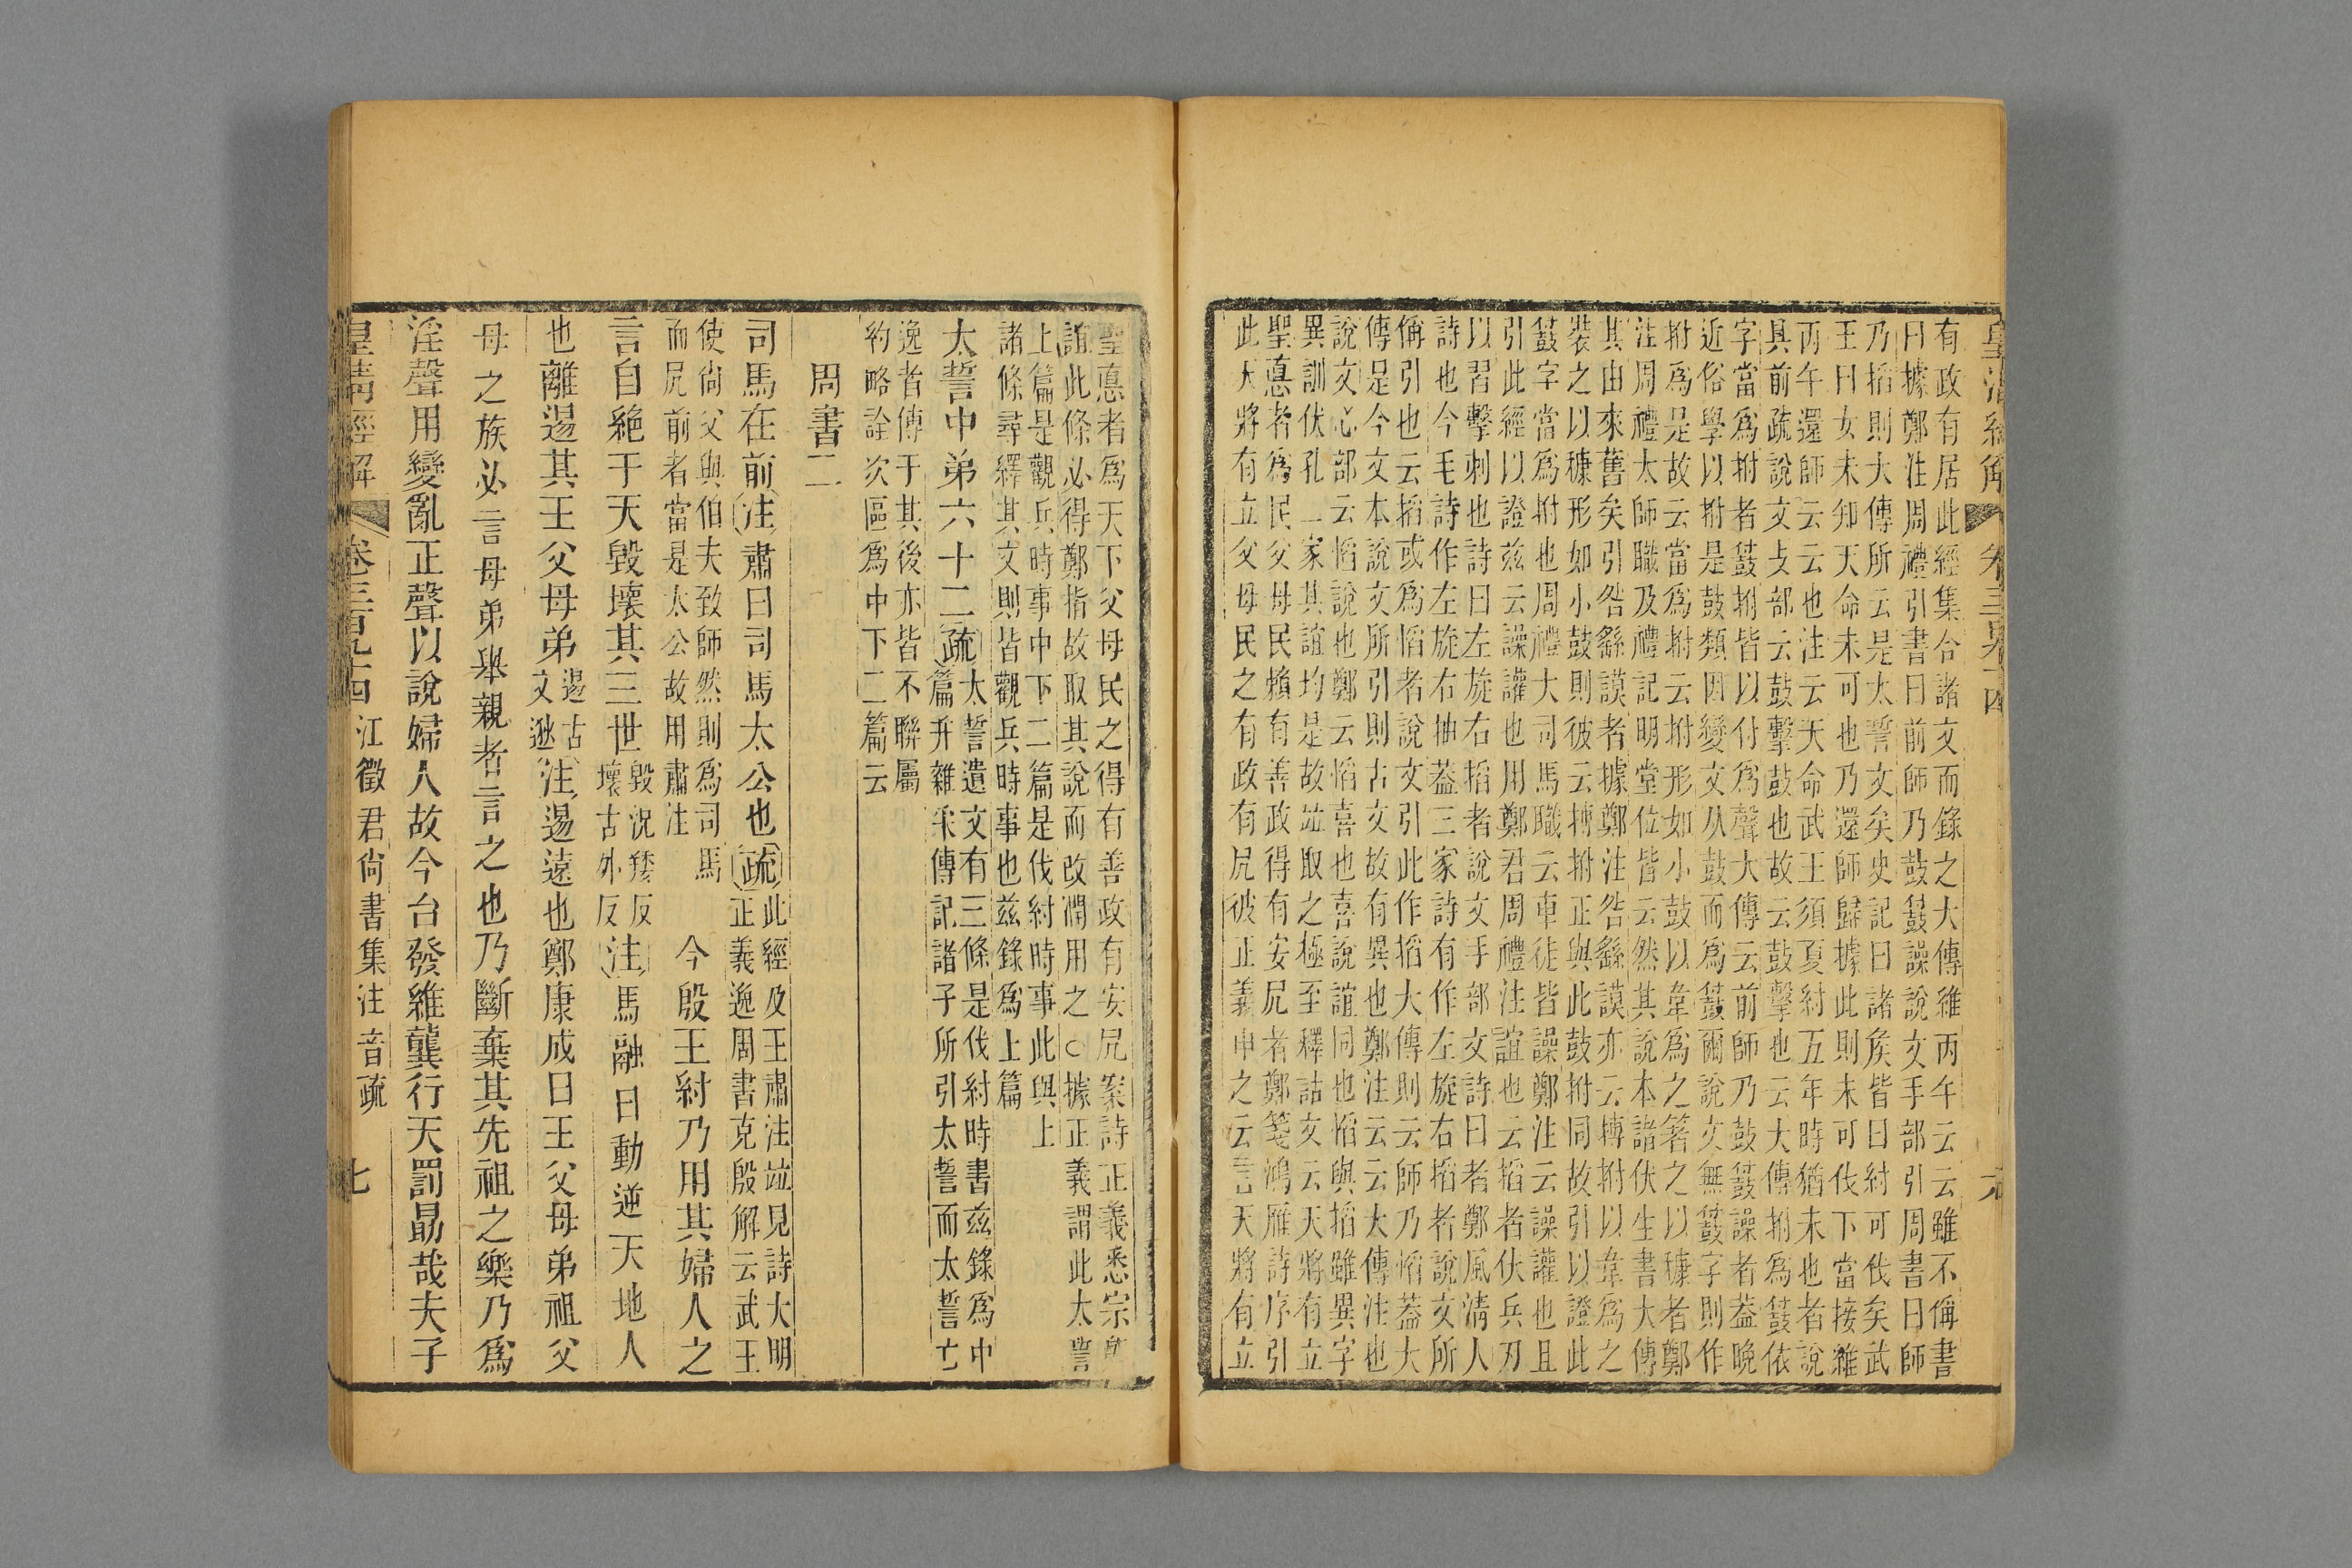 有政有居此經集合諸文而錄之大傳維丙午云云雖不偁書
曰據鄭注周禮引書曰前師乃鼓鼗譟說文手部引周書曰師
乃搯則大傳所云是太誓文矣史記曰諸矦皆曰紂可伐矣武
王曰女未知天命未可也乃還師歸據此則未可伐下當接維
丙午還師云云也注云天命武王須夏紂五年時猶未也者說
具前疏說文攴部云鼓擊鼓也故云鼓擊也云大傳拊爲鼗依
字當爲拊者鼗拊皆以付爲聲大傳云前師乃鼓鼗譟者葢晚
近俗學以拊是鼓類因變文从鼓而爲鼗爾說文無鼗字則作
拊爲是故云當爲拊云拊形如小鼓以韋爲之著之以穅者鄭
注周禮太師職及禮記明堂位皆云然其說本諸伏生書大傳
其由來舊矣引咎繇謨者據鄭注咎繇謨亦云搏拊以韋爲之
裝之以穅形如小鼓則彼云搏拊正與此鼓拊同故引以證此
鼗字當爲拊也周禮大司馬職云車徒皆譟鄭注云譟讙也且
引此經以證兹云譟讙也用鄭君周禮注誼也云搯者伏兵刃
以習擊刺也詩曰左旋右搯者說文手部文詩曰者鄭風淸人
詩也今毛詩作左旋右抽葢三家詩有作左旋右搯者說文所
偁引也云搯或爲慆者說文引此作搯大傳則云師乃慆葢大
傳是今文本說文所引則古文故有異也鄭注云云大傳注也
說文心部云慆說也鄭云慆喜也喜說誼同也慆與搯雖異字
異訓伏孔二家其誼均是故竝取之極至釋詁文云天將有立
聖悳者爲民父母民賴有善政得有安凥者鄭箋鴻雁詩序引
此天將有立父母民之有政有凥彼正義申之云言天將有立
聖悳者爲天下父母民之得有善政有安凥案詩正義悉宗鄭
誼此條必得鄭指故取其說而改潤用之○據正義謂此太誓
上篇是觀兵時事中下二篇是伐紂時事此與上
諸條尋繹其文則皆觀兵時事也兹錄爲上篇
太誓中弟六十二疏太誓遺文有三條是伐紂時書兹錄爲中
篇并雜采傳記諸子所引太誓而太誓亡
逸者傳于其後亦皆不聯屬
約略詮次區爲中下二篇云
周書二
司馬在前注肅曰司馬太公也疏此經及王肅注竝見詩大明
正義逸周書克殷解云武王
使尙父與伯夫致師然則爲司馬
而凥前者當是太公故用肅注
今殷王紂乃用其婦人之
言自絶于天毀壞其三世毀況㷄反
壞古外反注馬融曰動逆天地人
也離逷其王父母弟逷古
文逖注逷遠也鄭康成曰王父母弟祖父
母之族必言母弟舉親者言之也乃斷棄其先祖之樂乃爲
淫聲用變亂正聲以說婦人故今台發維龔行天罰勗哉夫子
皇淸經解
卷三百九十四 江徵君尙書集注音疏
七